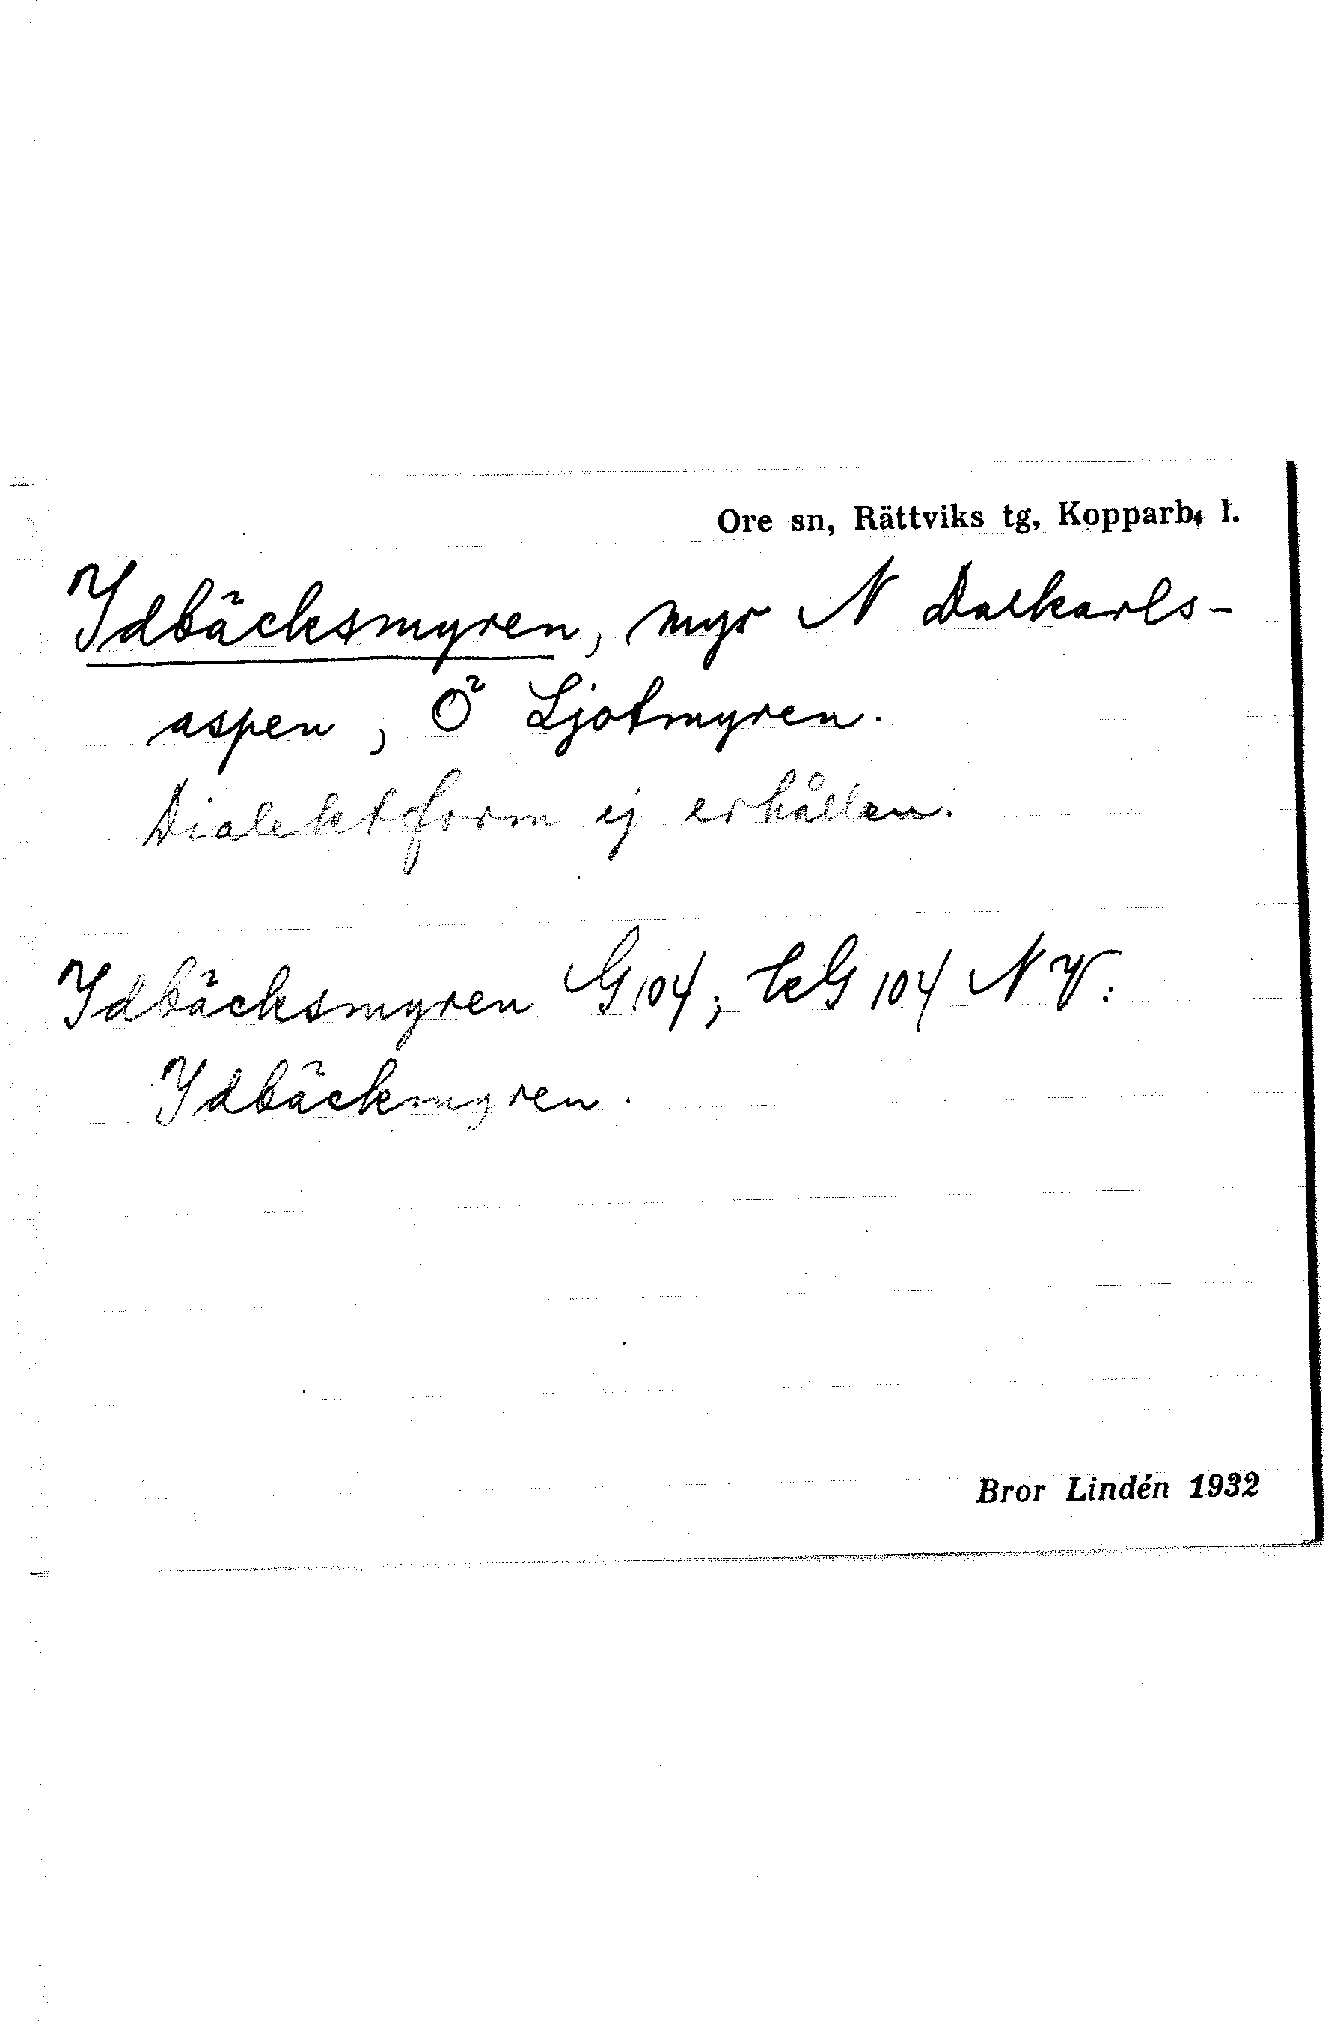 Ore sn, Rättviks tg, Kopparb. l.
Idbäcksmyren, myr N Dalkarls-
aspen, Ö Ljotmyren.
Dialektform ej erhållen.
Idbäcksmyren G 104; EkG 104 NV:
Idbäckmyren.
Bror Lindén 1932